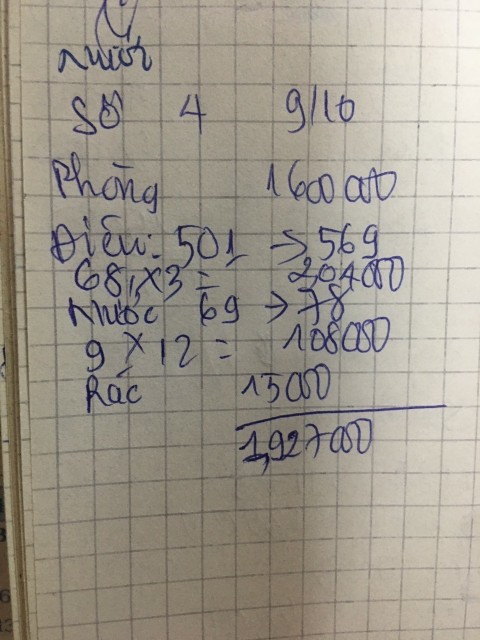 Nước
Số 4 9/10
Phòng 1600000
Điện: 501 → 569
68 x 3 = 204000
Nước 69 → 78
9 x 12 = 108000
Rác 15000
1,927000